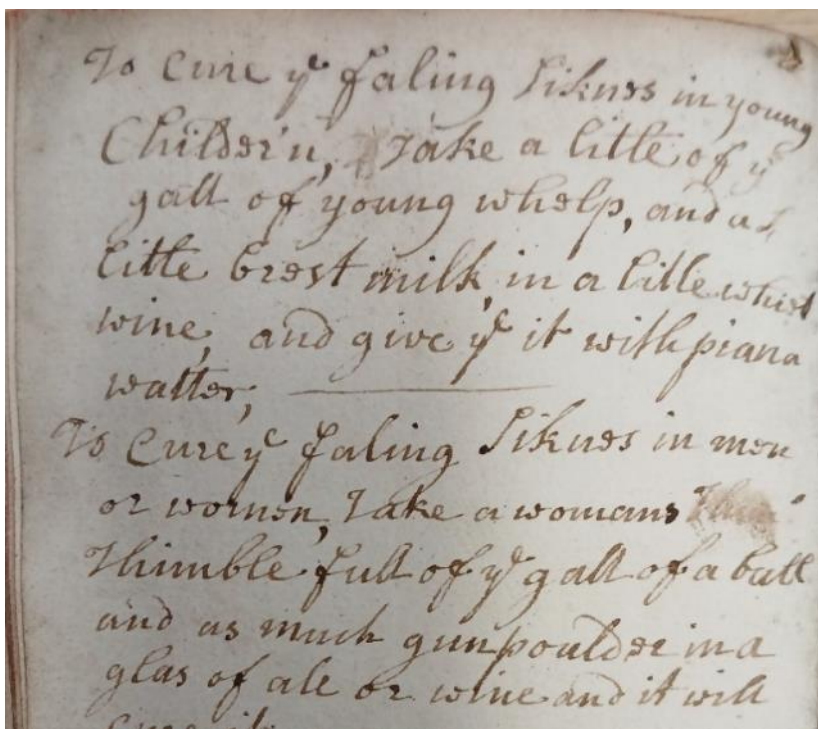 To Cure ye faling Siknes in young
Childer'n, Take a litle of ye
gall of young whelp, and a
litle brest milk, in a litle whiet
wine, and give ym it with piana
watter,
To Cure ye faling Siknes in men
or women, Take a womans
Thimble full of ye gall of a bull
and as much gunpoulder in a
glas of ale or wine and it will